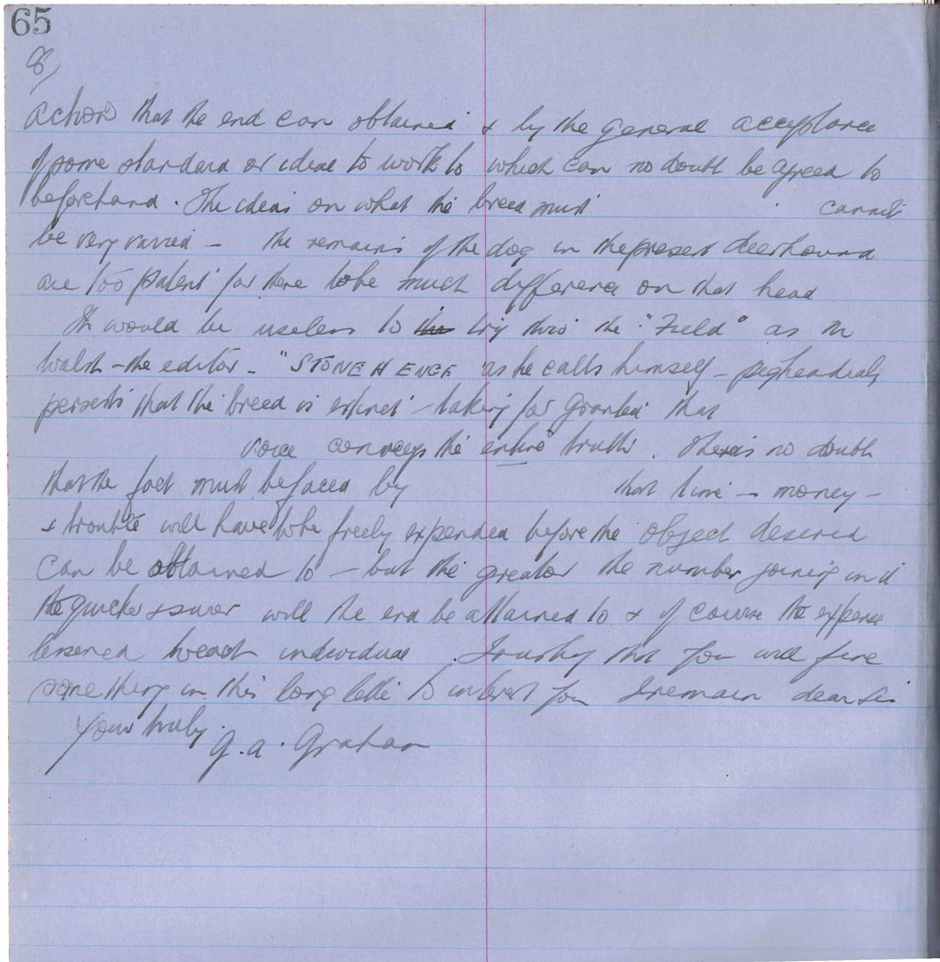 65
8/
action that the end can obtained & by the general acceptance
of some standard or ideal to work to which can no doubt be agreed to
beforehand. The ideas on what the breed must cannot
be very varied – the remains of the dog in the present deerhound
are too patent for there to be much difference on that head
It would be useless to try thro' the "Field" as Mr
Walsh – the editor – "STONEHENGE as he calls himself – pigheadedly
persists that the breed is extinct – taking for granted that
voice conveys the entire truth. There is no doubt
that the fact must be faced by that time – money –
& trouble will have to be freely expended before the object desired
can be attained to – but the greater the number joining in it
the quicker & surer will the end be attained to & of course the expense
lessened to each individual. Trusting that you will find
something in this long letter to interest you I remain dear Sir
Yours truly.
G. A. Graham